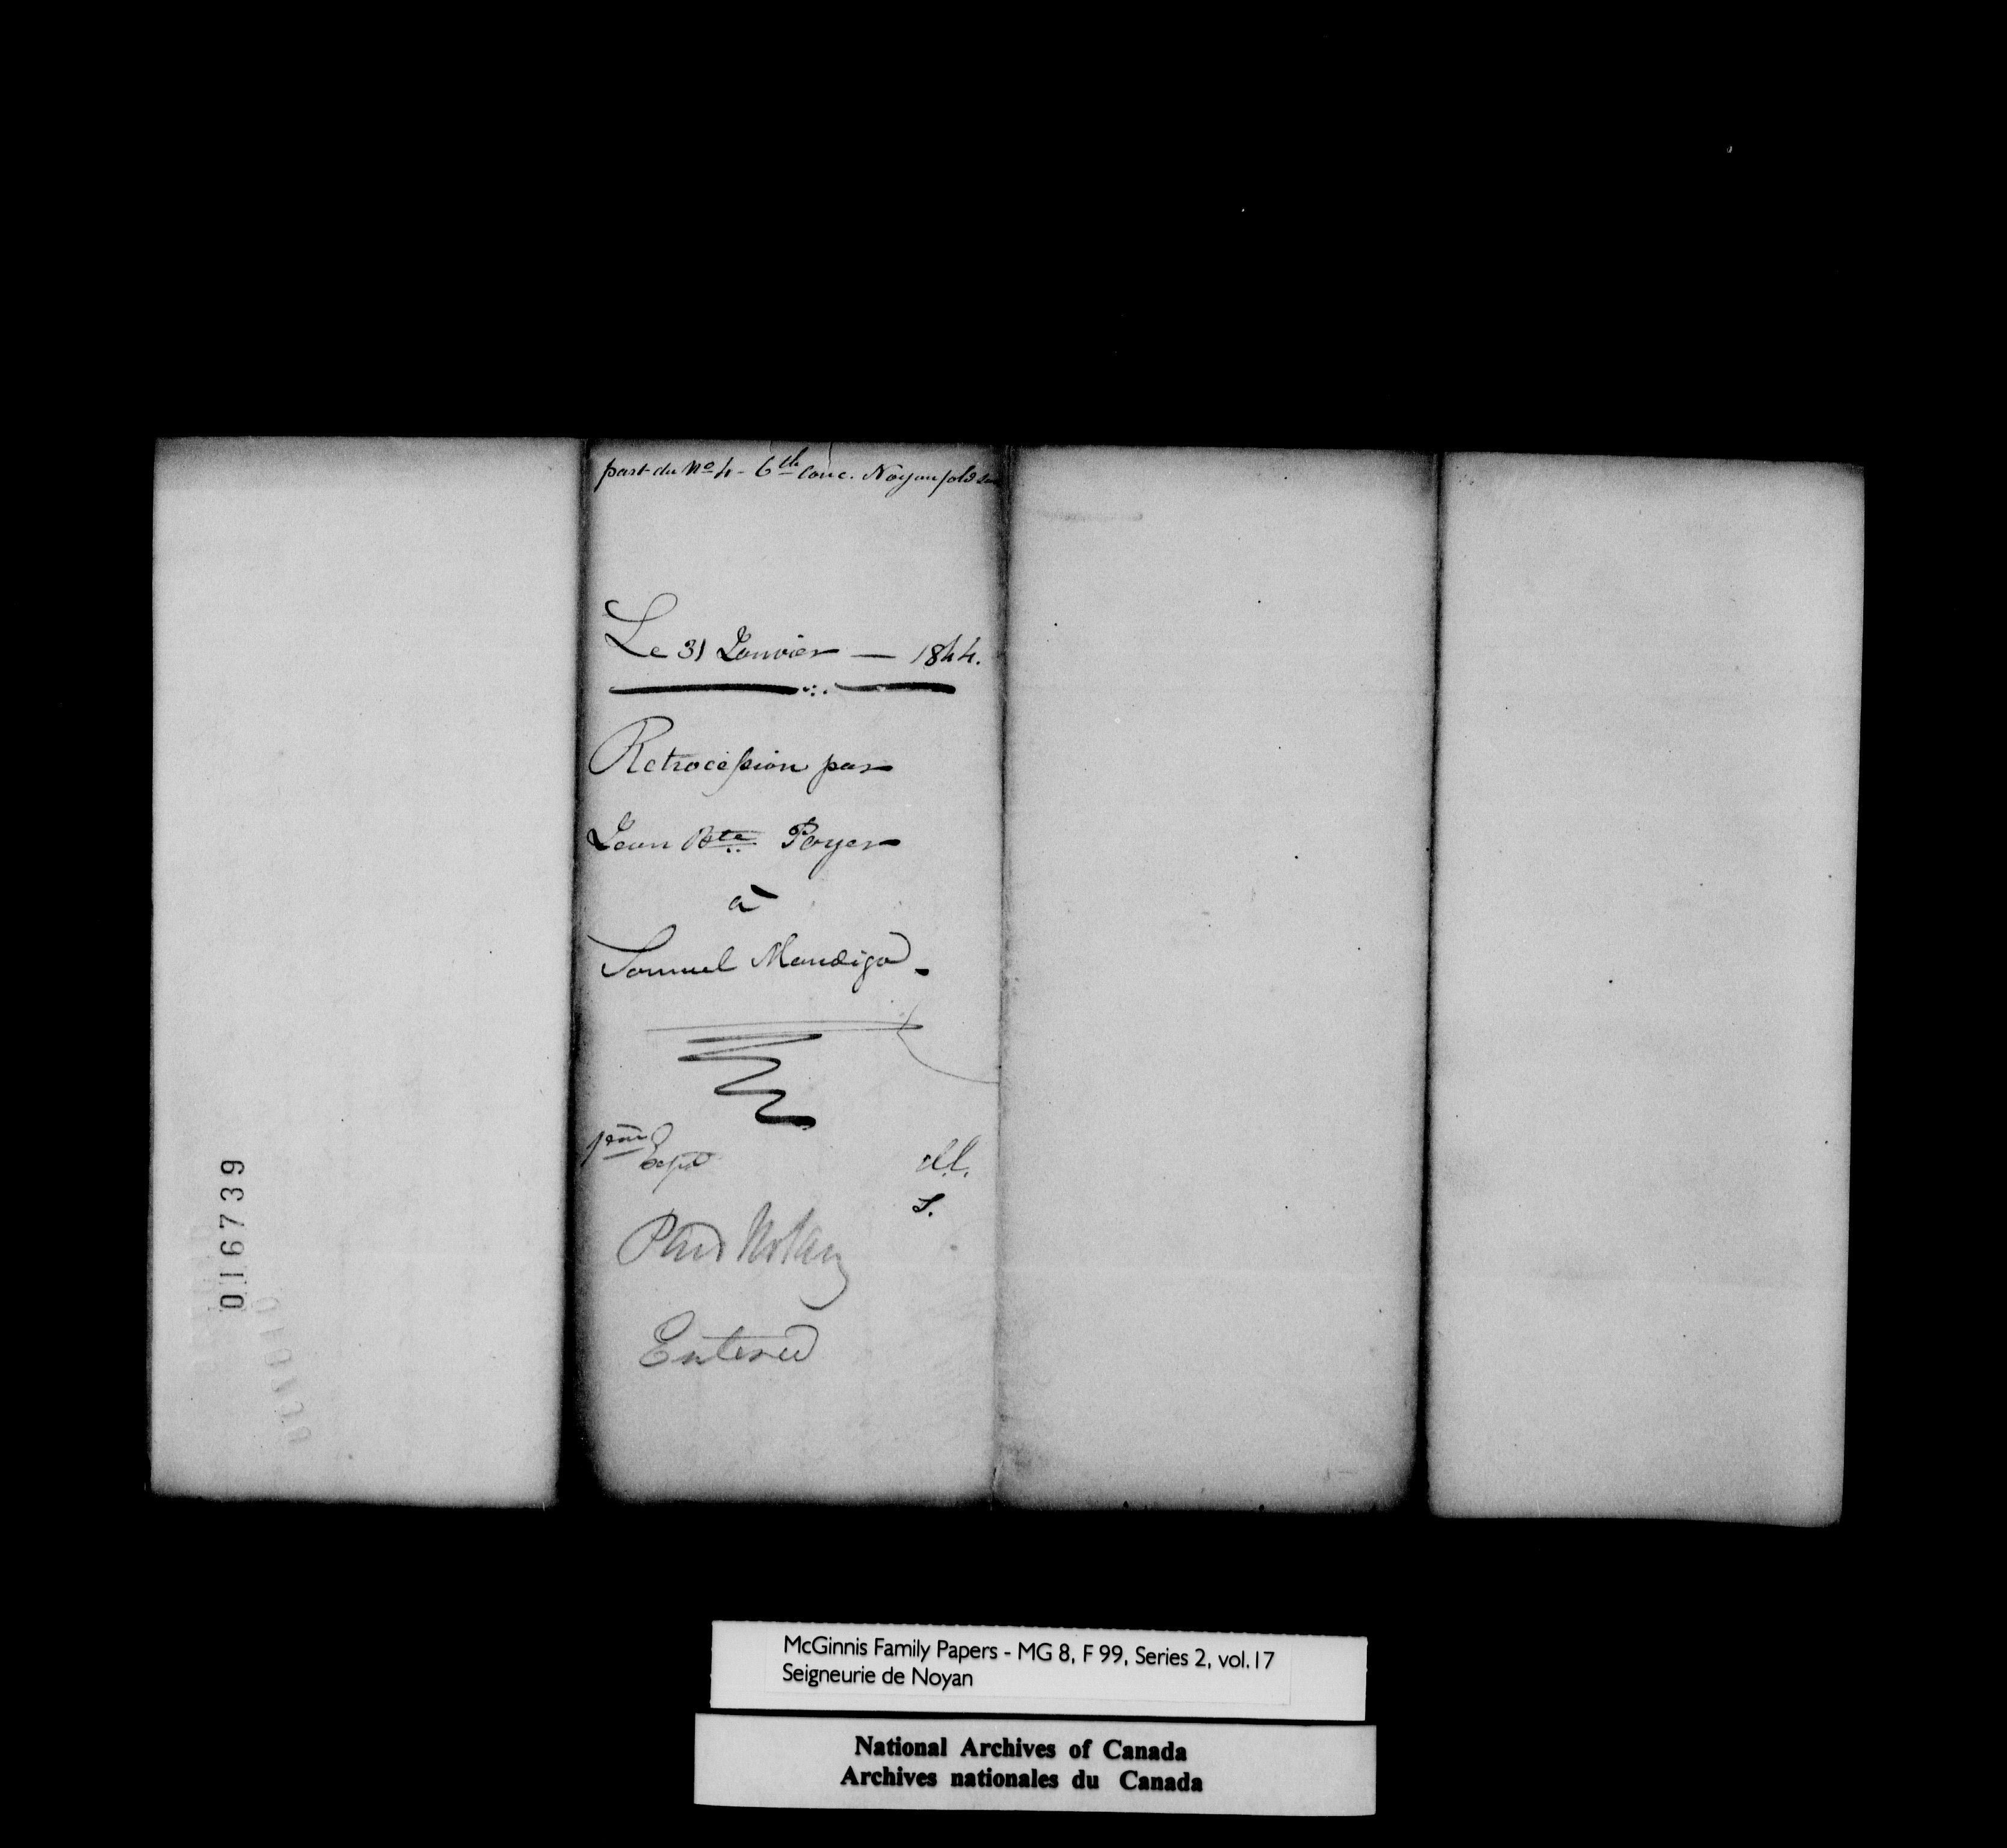 016739
part du No 4 - 6th Conc. Noyan sold
Le 31 Janvier — 1844.
Retrocession par
Jean Bte Poyer
à
Samuel Mandigo.
1ère Expd
S.
Entered
McGinnis Family Papers - MG 8, F 99, Series 2, vol.17
Seigneurie de Noyan
National Archives of Canada
Archives nationales du Canada